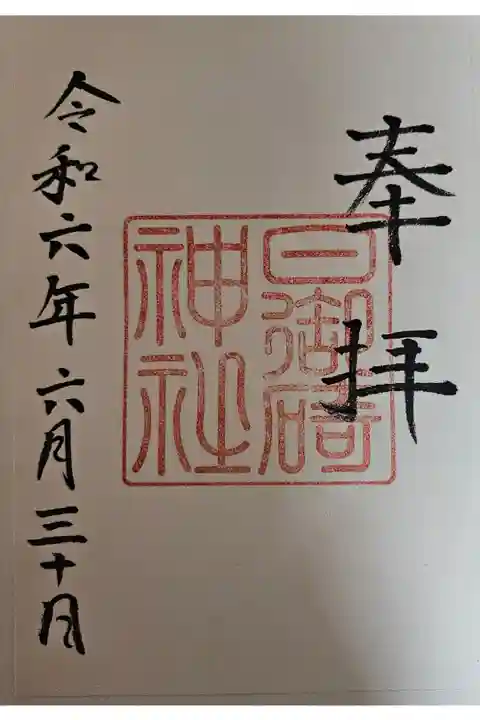 奉拝
日御碕
神社
令和六年六月三十日